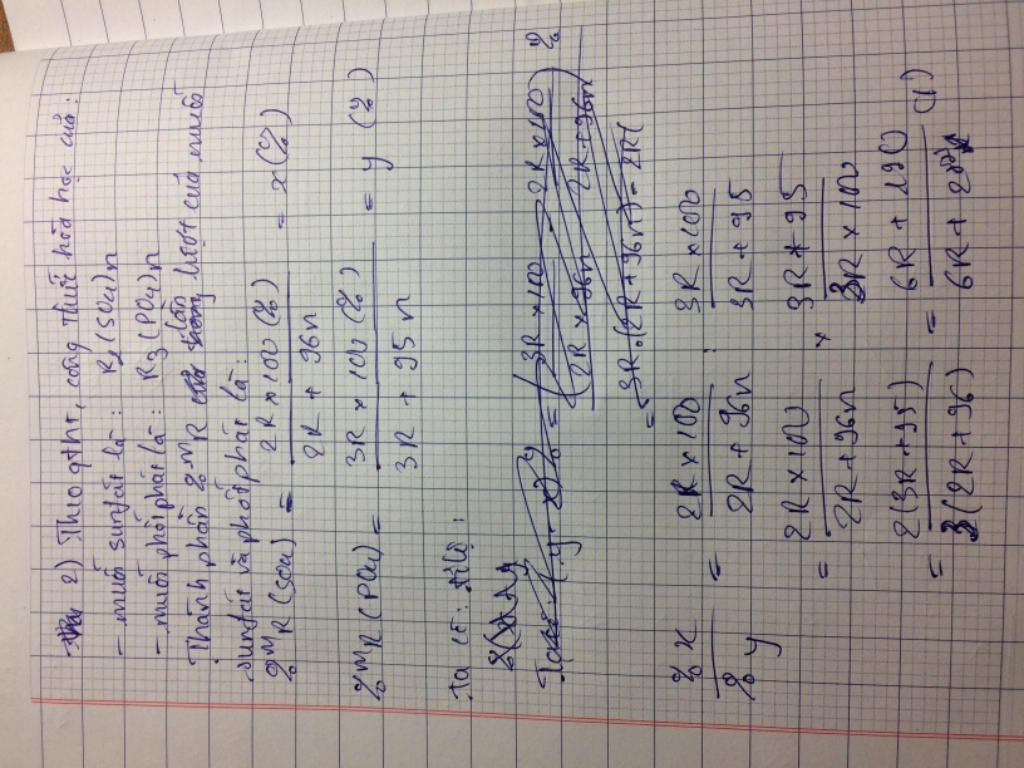 2) Theo gtht, công thức hóa học của:
- muối sunfat là: R2(SO4)n
- muối phôtphát là: R3(PO4)n
Thành phần % mR lần lượt của muối
sunfat và phôtphát là:
%mR(SO4) = 2R × 100 (%) / 2R + 96n = x (%)
%mR(PO4) = 3R × 100 (%) / 3R + 95n = y (%)
Ta có: tỉ lệ:
%x / %y = 2R × 100 / 2R + 96n : 3R × 100 / 3R + 95
= 2R × 100 / 2R + 96n × 3R + 95 / 3R × 100
= 2(3R + 95) / 3(2R + 96) = 6R + 190 / 6R + 288 (1)